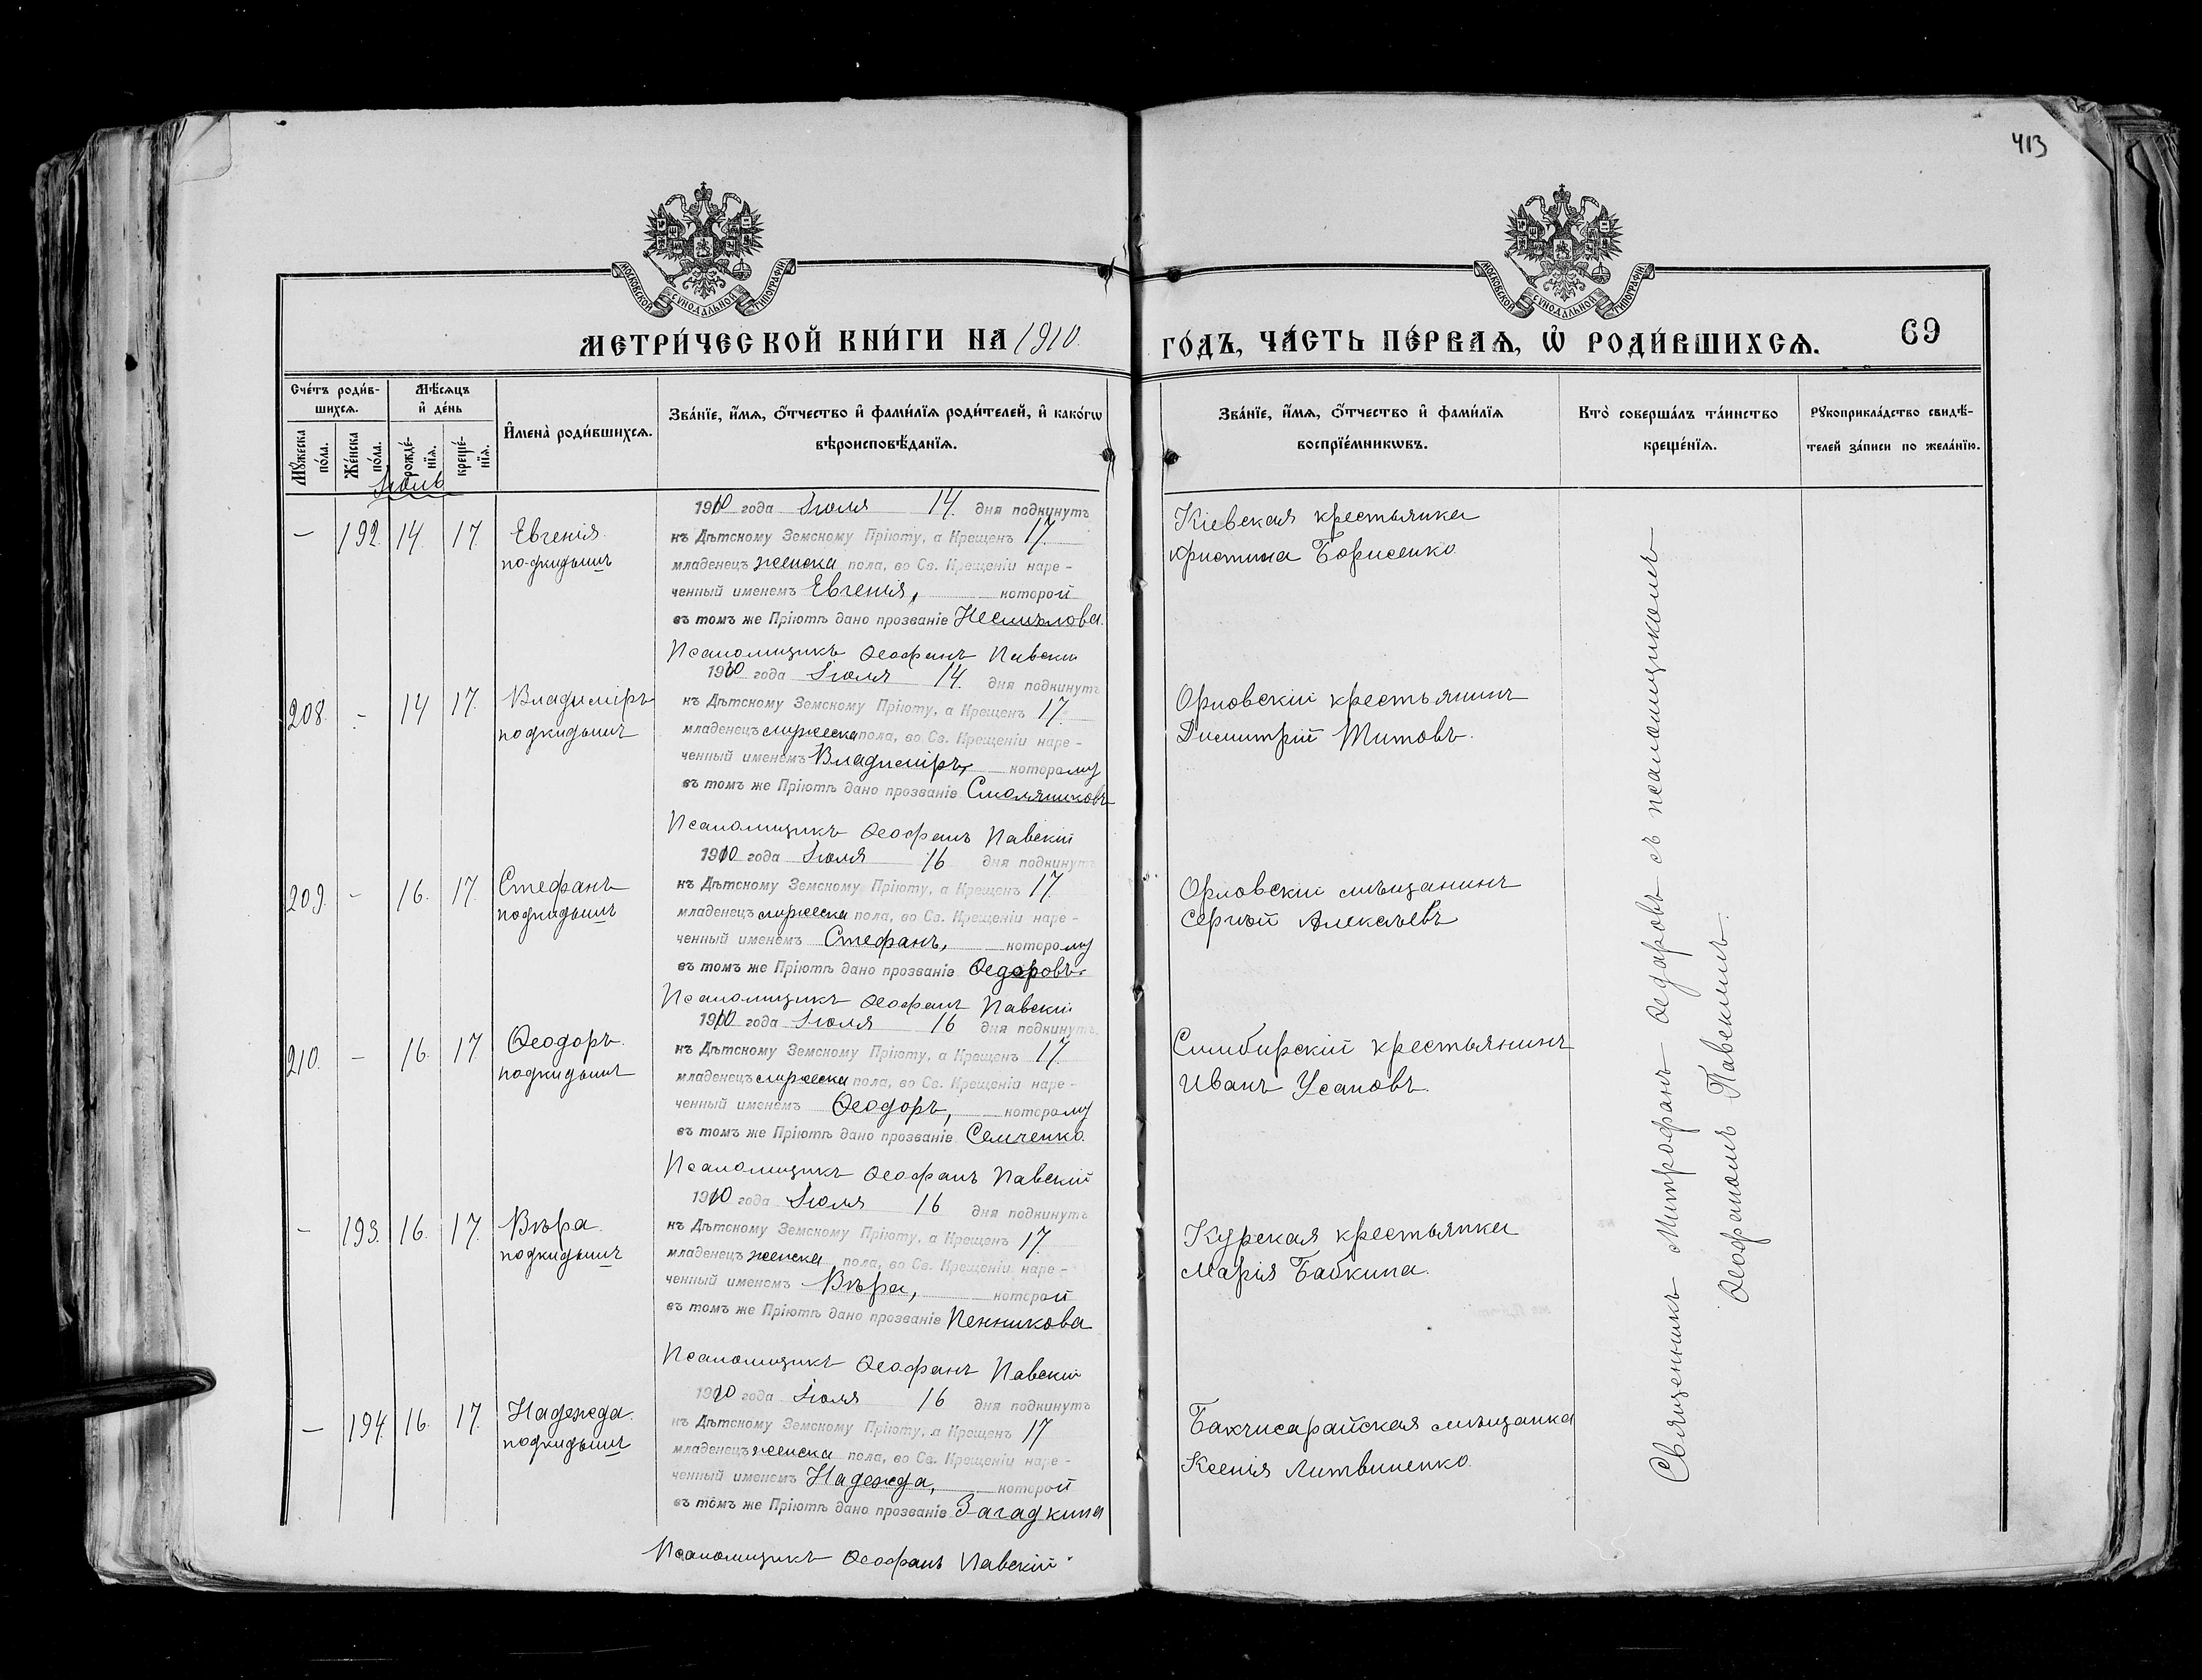 413
МОСКОВСКОЙ СѴНОДАЛЬНОЙ ТИПОГРАФІИ
МОСКОВСКОЙ СѴНОДАЛЬНОЙ ТИПОГРАФІИ
МЕТРИ́ЧЕСКОЙ КНИ́ГИ НА 1910. ГО́ДЪ, ЧА́СТЬ ПЕ́РВАѦ, Ѡ РОДИ́ВШИХСѦ. 69
Сче́тъ роди́в-
шихсѧ.
Мꙋ́жеска по́ла.
Же́нска по́ла.
Мѣ́сѧцъ
и҆ де́нь
рожде́-
нїѧ.
креще́-
нїѧ.
И҆мена̀ роди́вшихсѧ.
Зва́нїе, и҆́мѧ, ѻ҆́тчество и҆ фами́лїѧ роди́телей, и҆ како́гѡ
вѣроисповѣ́данїѧ.
Зва́нїе, и҆́мѧ, ѻ҆́тчество и҆ фами́лїѧ
воспрїе́мникѡвъ.
Кто̀ соверша́лъ та́инство
креще́нїѧ.
Рꙋкоприкла́дство свидѣ́-
телей за́писи по жела́нїю.
Іюль
– 192. 14. 17 Евгенія
подкидышъ
1910 года Іюля 14. дня подкинутъ
къ Дѣтскому Земскому Пріюту, а Крещенъ 17.
младенецъ женска пола, во Св. Крещеніи наре-
ченный именемъ Евгенія, которой
въ томъ же Пріютѣ дано прозваніе Несмѣлова.
Псаломщикъ Ѳеофанъ Павскій
Кіевская крестьянка
Христина Борисенко
208. – 14 17. Владиміръ
подкидышъ
1910 года Іюля 14. дня подкинутъ
къ Дѣтскому Земскому Пріюту, а Крещенъ 17.
младенецъ мужеска пола, во Св. Крещеніи наре-
ченный именемъ Владиміръ, которому
въ томъ же Пріютѣ дано прозваніе Смоляниковъ
Псаломщикъ Ѳеофанъ Павскій
Орловскій крестьянинъ
Димитрій Титовъ.
209. – 16. 17. Стефанъ
подкидышъ
1910 года Іюля 16 дня подкинутъ
къ Дѣтскому Земскому Пріюту, а Крещенъ 17.
младенецъ мужеска пола, во Св. Крещеніи наре-
ченный именемъ Стефанъ, которому
въ томъ же Пріютѣ дано прозваніе Ѳедоровъ.
Псаломщикъ Ѳеофанъ Павскій
Орловскій мѣщанинъ
Сергѣй Алексѣевъ
210. – 16. 17. Ѳеодоръ.
подкидышъ
1910 года Іюля 16 дня подкинутъ
къ Дѣтскому Земскому Пріюту, а Крещенъ 17.
младенецъ мужеска пола, во Св. Крещеніи наре-
ченный именемъ Ѳеодоръ, которому
въ томъ же Пріютѣ дано прозваніе Семченко.
Псаломщикъ Ѳеофанъ Павскій
Симбирскій крестьянинъ
Иванъ Усановъ.
– 193. 16. 17. Вѣра.
подкидышъ
1910 года Іюля 16 дня подкинутъ
къ Дѣтскому Земскому Пріюту, а Крещенъ 17.
младенецъ женска пола, во Св. Крещеніи наре-
ченный именемъ Вѣра, которой
въ томъ же Пріютѣ дано прозваніе Пенникова
Псаломщикъ Ѳеофанъ Павскій
Курская крестьянка
Марія Бабкина.
– 194. 16. 17. Надежда.
подкидышъ
1910 года Іюля 16 дня подкинутъ
къ Дѣтскому Земскому Пріюту, а Крещенъ 17
младенецъ женска пола, во Св. Крещеніи наре-
ченный именемъ Надежда, которой
въ томъ же Пріютѣ дано прозваніе Загадкина
Псаломщикъ Ѳеофанъ Павскій
Бахчисарайская мѣщанка
Ксенія Литвиненко.
Священникъ Митрофанъ Ѳедоровъ съ псаломщикомъ
Ѳеофаномъ Павскимъ.